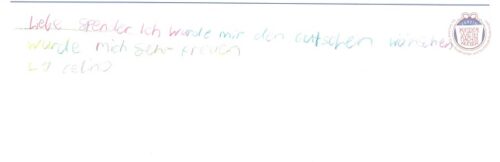 Liebe Spender Ich wurde mir den Gutschein wünschen
wurde mich sehr freuen
LG celina